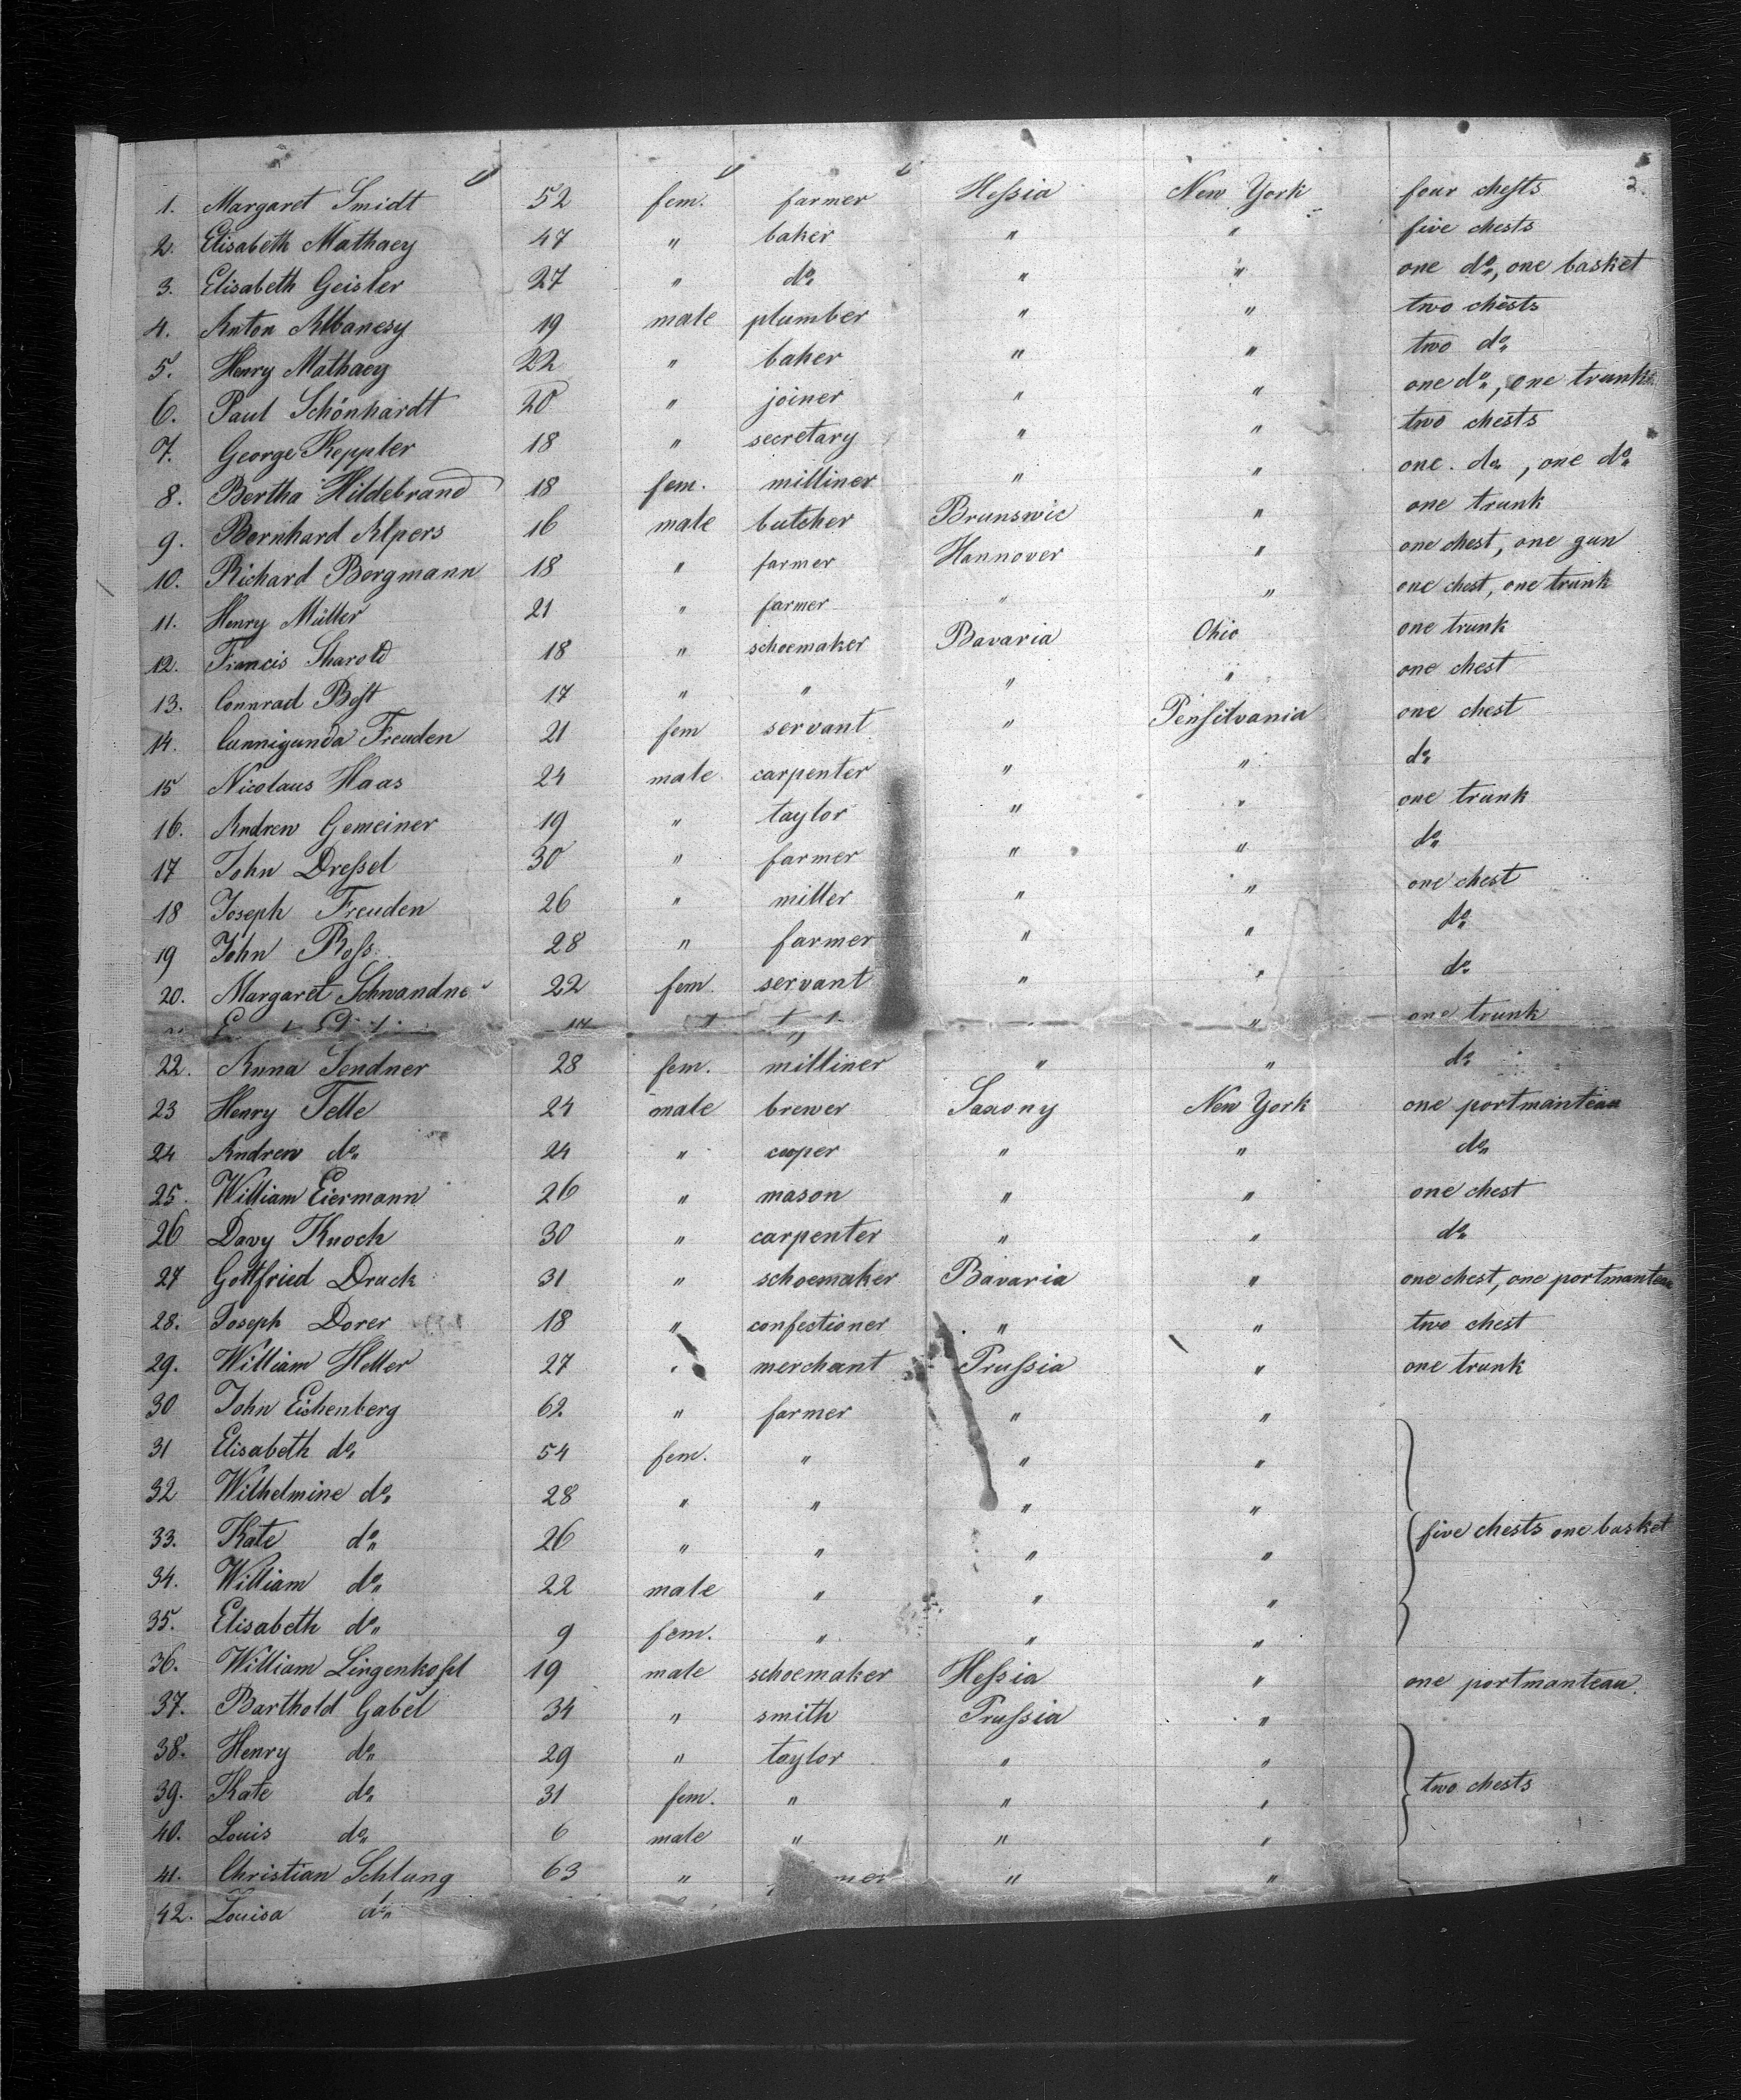 2.
1. Margaret Smidt 52 fem. farmer Heſsia New York four cheſts
2. Elisabeth Mathaey 47 " baker " " five chests
3. Elisabeth Geisler 27 " do " " one do, one basket
4. Anton Albanesy 19 male plumber " " two chests
5. Henry Mathaey 22 " baker " " two do
6. Paul Schönhardt 20 " joiner " " one do, one trunk
7. George Keppler 18 " secretary " " two chests
8. Bertha Hildebrand 18 fem. milliner " " one do, one do
9. Bernhard Alpers 16 male butcher Brunswic " one trunk
10. Richard Borgmann 18 " farmer Hannover " one chest, one gun
11. Henry Müller 21 " farmer " " one chest, one trunk
12. Francis Sharold 18 " schoemaker Bavaria Ohio one trunk
13. Connrad Boſt 17 " " " " one chest
14. Cunnigunda Freuden 21 fem servant " Penſilvania one chest
15 Nicolaus Haas 24 male carpenter " " do
16. Andrew Gemeiner 19 " taylor " " one trunk
17 John Dreſsel 30 " farmer " " do
18 Joseph Freuden 26 " miller " " one chest
19 John Roſs 28 " farmer " " do
20. Margaret Schwandne 22 fem servant " " do
" one trunk
22. Anna Sendner 28 fem. milliner " " do
23 Henry Telle 24 male brewer Saxony New York one portmanteau
24 Andrew do 24 " cooper " " do
25. William Eiermann 26 " mason " " one chest
26 Davy Knoch 30 " carpenter " " do
27 Gottfried Druck 31 " schoemaker Bavaria " one chest, one portmanteau
28. Joseph Dorer 18 " confectioner " " two chest
29. William Heller 27 " merchant Pruſsia " one trunk
30 John Eichenberg 62 " farmer " "
31 Elisabeth do 54 fem. " " "
32 Wilhelmine do 28 " " " "
33. Kate do 26 " " " " five chests one basket
34. William do 22 male " " "
35. Elisabeth do 9 fem. " " "
36. William Lingenkofel 19 male schoemaker Heſsia " one portmanteau.
37. Barthold Gabel 34 " smith Pruſsia "
38. Henry do 29 " taylor " "
39. Kate do 31 fem. " " " two chests
40. Louis do 6 male " " "
41. Christian Schlung 63 " " "
42. Louisa do